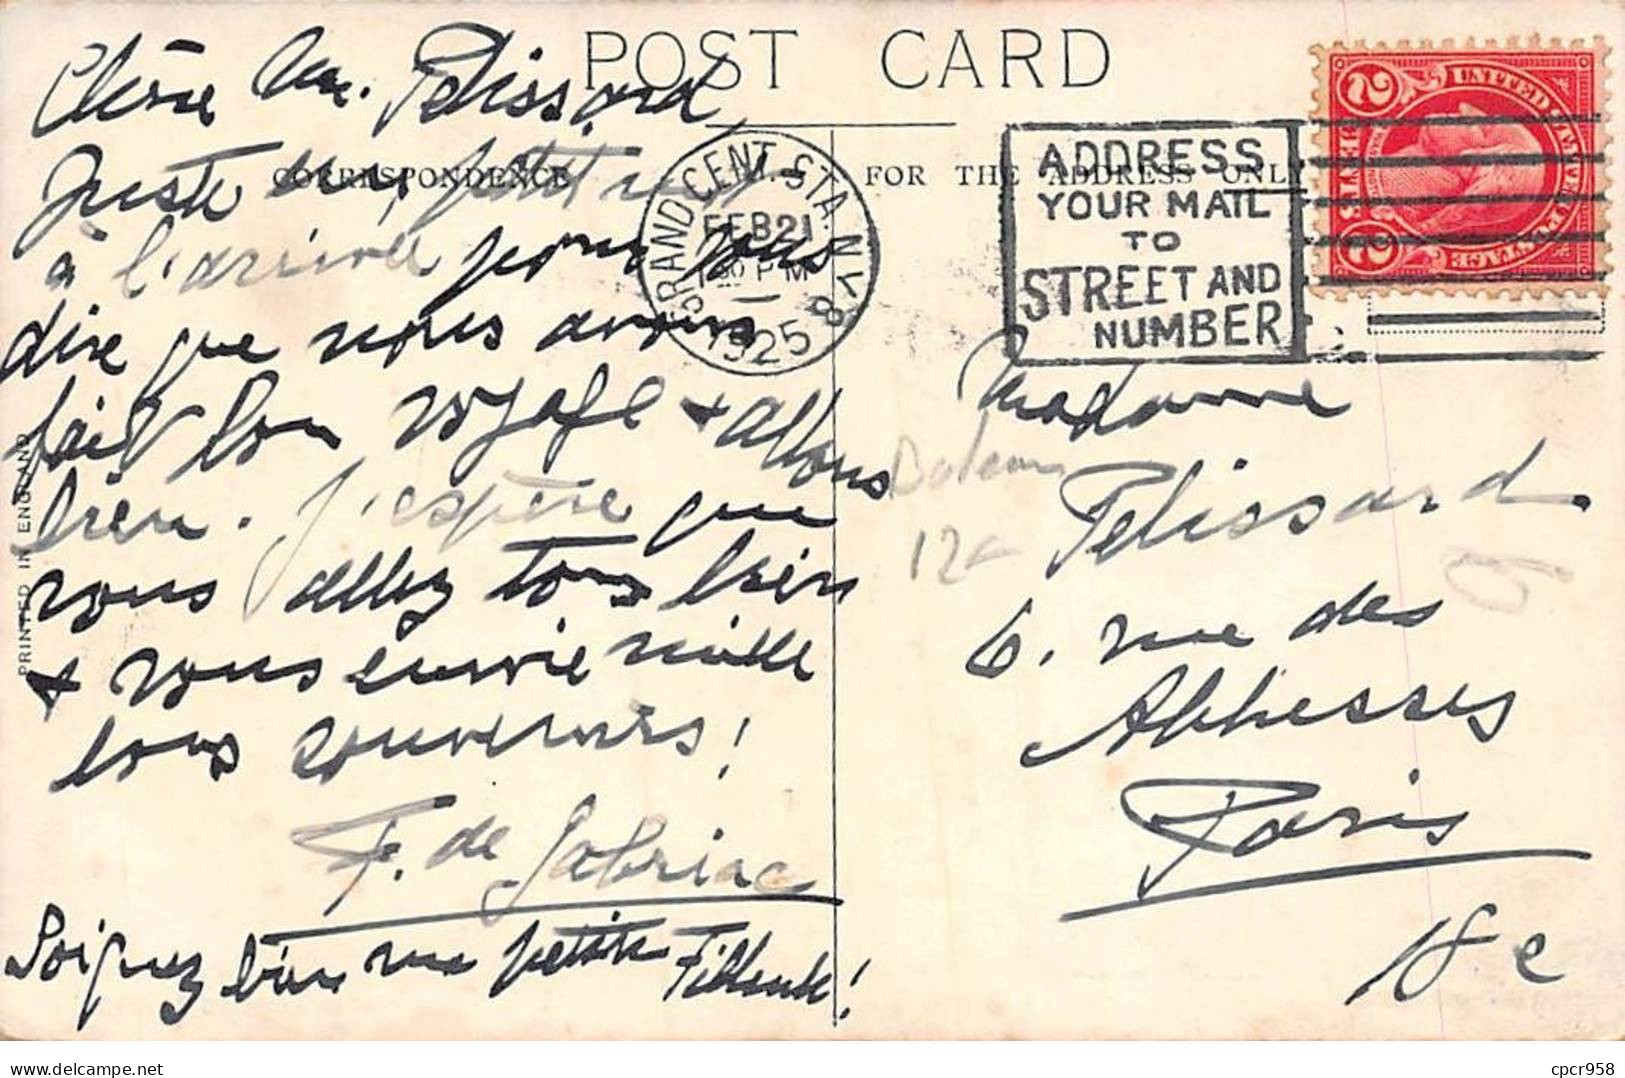 POST CARD
CORRESPONDENCE
FOR THE ADDRESS ONLY
Chère Mme. Pelissard,
Juste un petit mot
à l'arrivée pour vous
dire que nous avons
fait bon voyage & allons
bien. J'espère que
vous allez tous bien
& vous envoie mille
bons souvenirs!
F. de Jabriac
Soignez bien ma petite
PRINTED IN ENGLAND
GRAND CENT. STA. N.Y.
FEB 21
30 PM
1925
8
ADDRESS
YOUR MAIL
TO
STREET AND
NUMBER
UNITED STATES POSTAGE
2 2
Madame
Pelissard
6. rue des
Abbesses
Paris
18e
12
cpcr958